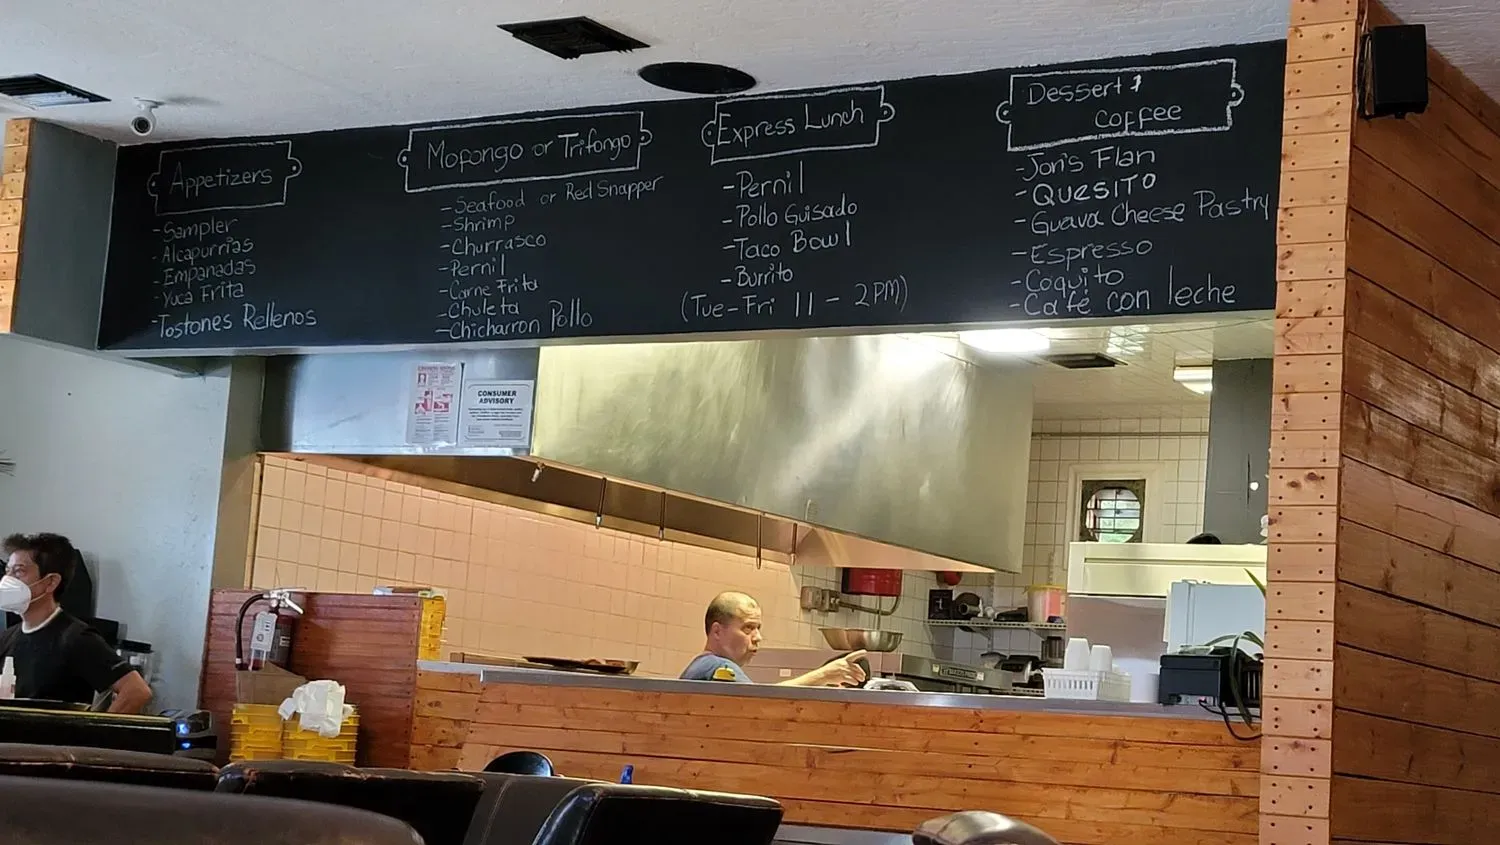 Appetizers
-Sampler
-Alcapurrias
-Empanadas
-Yuca Frita
-Tostones Rellenos
Mofongo or Trifongo
-Seafood or Red Snapper
-Shrimp
-Churrasco
-Pernil
-Carne Frita
-Chuleta
-Chicharron Pollo
Express Lunch
-Pernil
-Pollo Guisado
-Taco Bowl
-Burrito
(Tue-Fri 11 - 2PM)
Dessert &
coffee
-Jon's Flan
-QUESITO
-Guava Cheese Pastry
-Espresso
-Coquito
-Café con leche
CONSUMER
ADVISORY